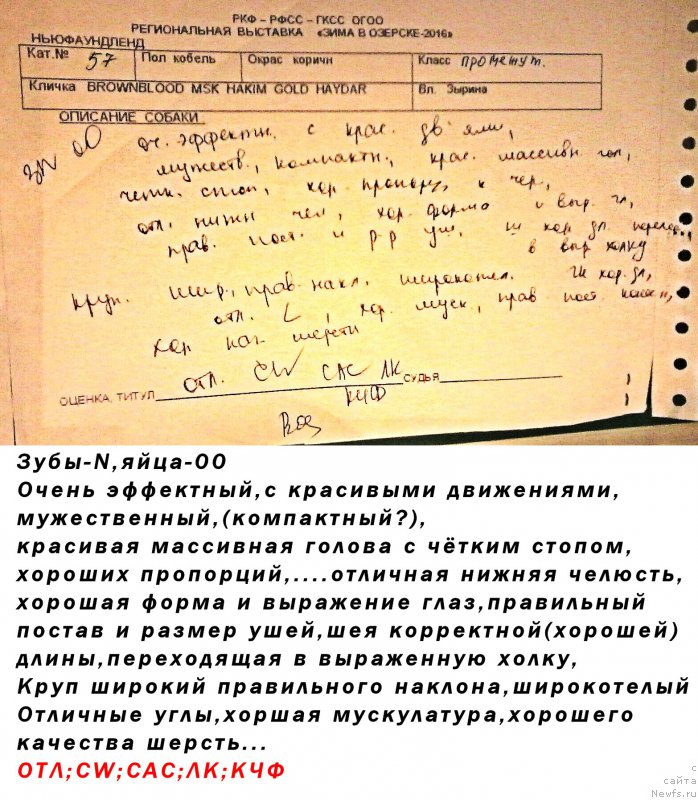 РКФ – РФСС – ГКСС ОГОО
РЕГИОНАЛЬНАЯ ВЫСТАВКА «ЗИМА В ОЗЕРСКЕ-2016»
НЬЮФАУНДЛЕНД
Кат.№ 57 Пол кобель Окрас коричн Класс промежут.
Кличка BROWNBLOOD MSK HAKIM GOLD HAYDAR Вл. Зырина
ОПИСАНИЕ СОБАКИ
зуб N 00 оч. эффектн. с крас. дв-ями,
мужеств., компактн., крас. массивн гол,
четк. стоп, хор. пропорц, к чер,
отл. нижн чел, хор. форма и выр. гл,
прав. пост. и р-р уш, ш хор. дл. переход.
в выр холку
круп. шир., прав. накл. широкотел. хор. дл,
отл. L, хор. муск, прав пост
хор кач. шерсти
ОЦЕНКА, ТИТУЛ отл. CW CAC ЛК СУДЬЯ
КЧФ
Зубы-N,яйца-00
Очень эффектный,с красивыми движениями,
мужественный,(компактный?),
красивая массивная голова с чётким стопом,
хороших пропорций,....отличная нижняя челюсть,
хорошая форма и выражение глаз,правильный
постав и размер ушей,шея корректной(хорошей)
длины,переходящая в выраженную холку,
Круп широкий правильного наклона,широкотелый
Отличные углы,хоршая мускулатура,хорошего
качества шерсть...
ОТЛ;CW;CAC;ЛК;КЧФ
с
сайта
Newfs.ru